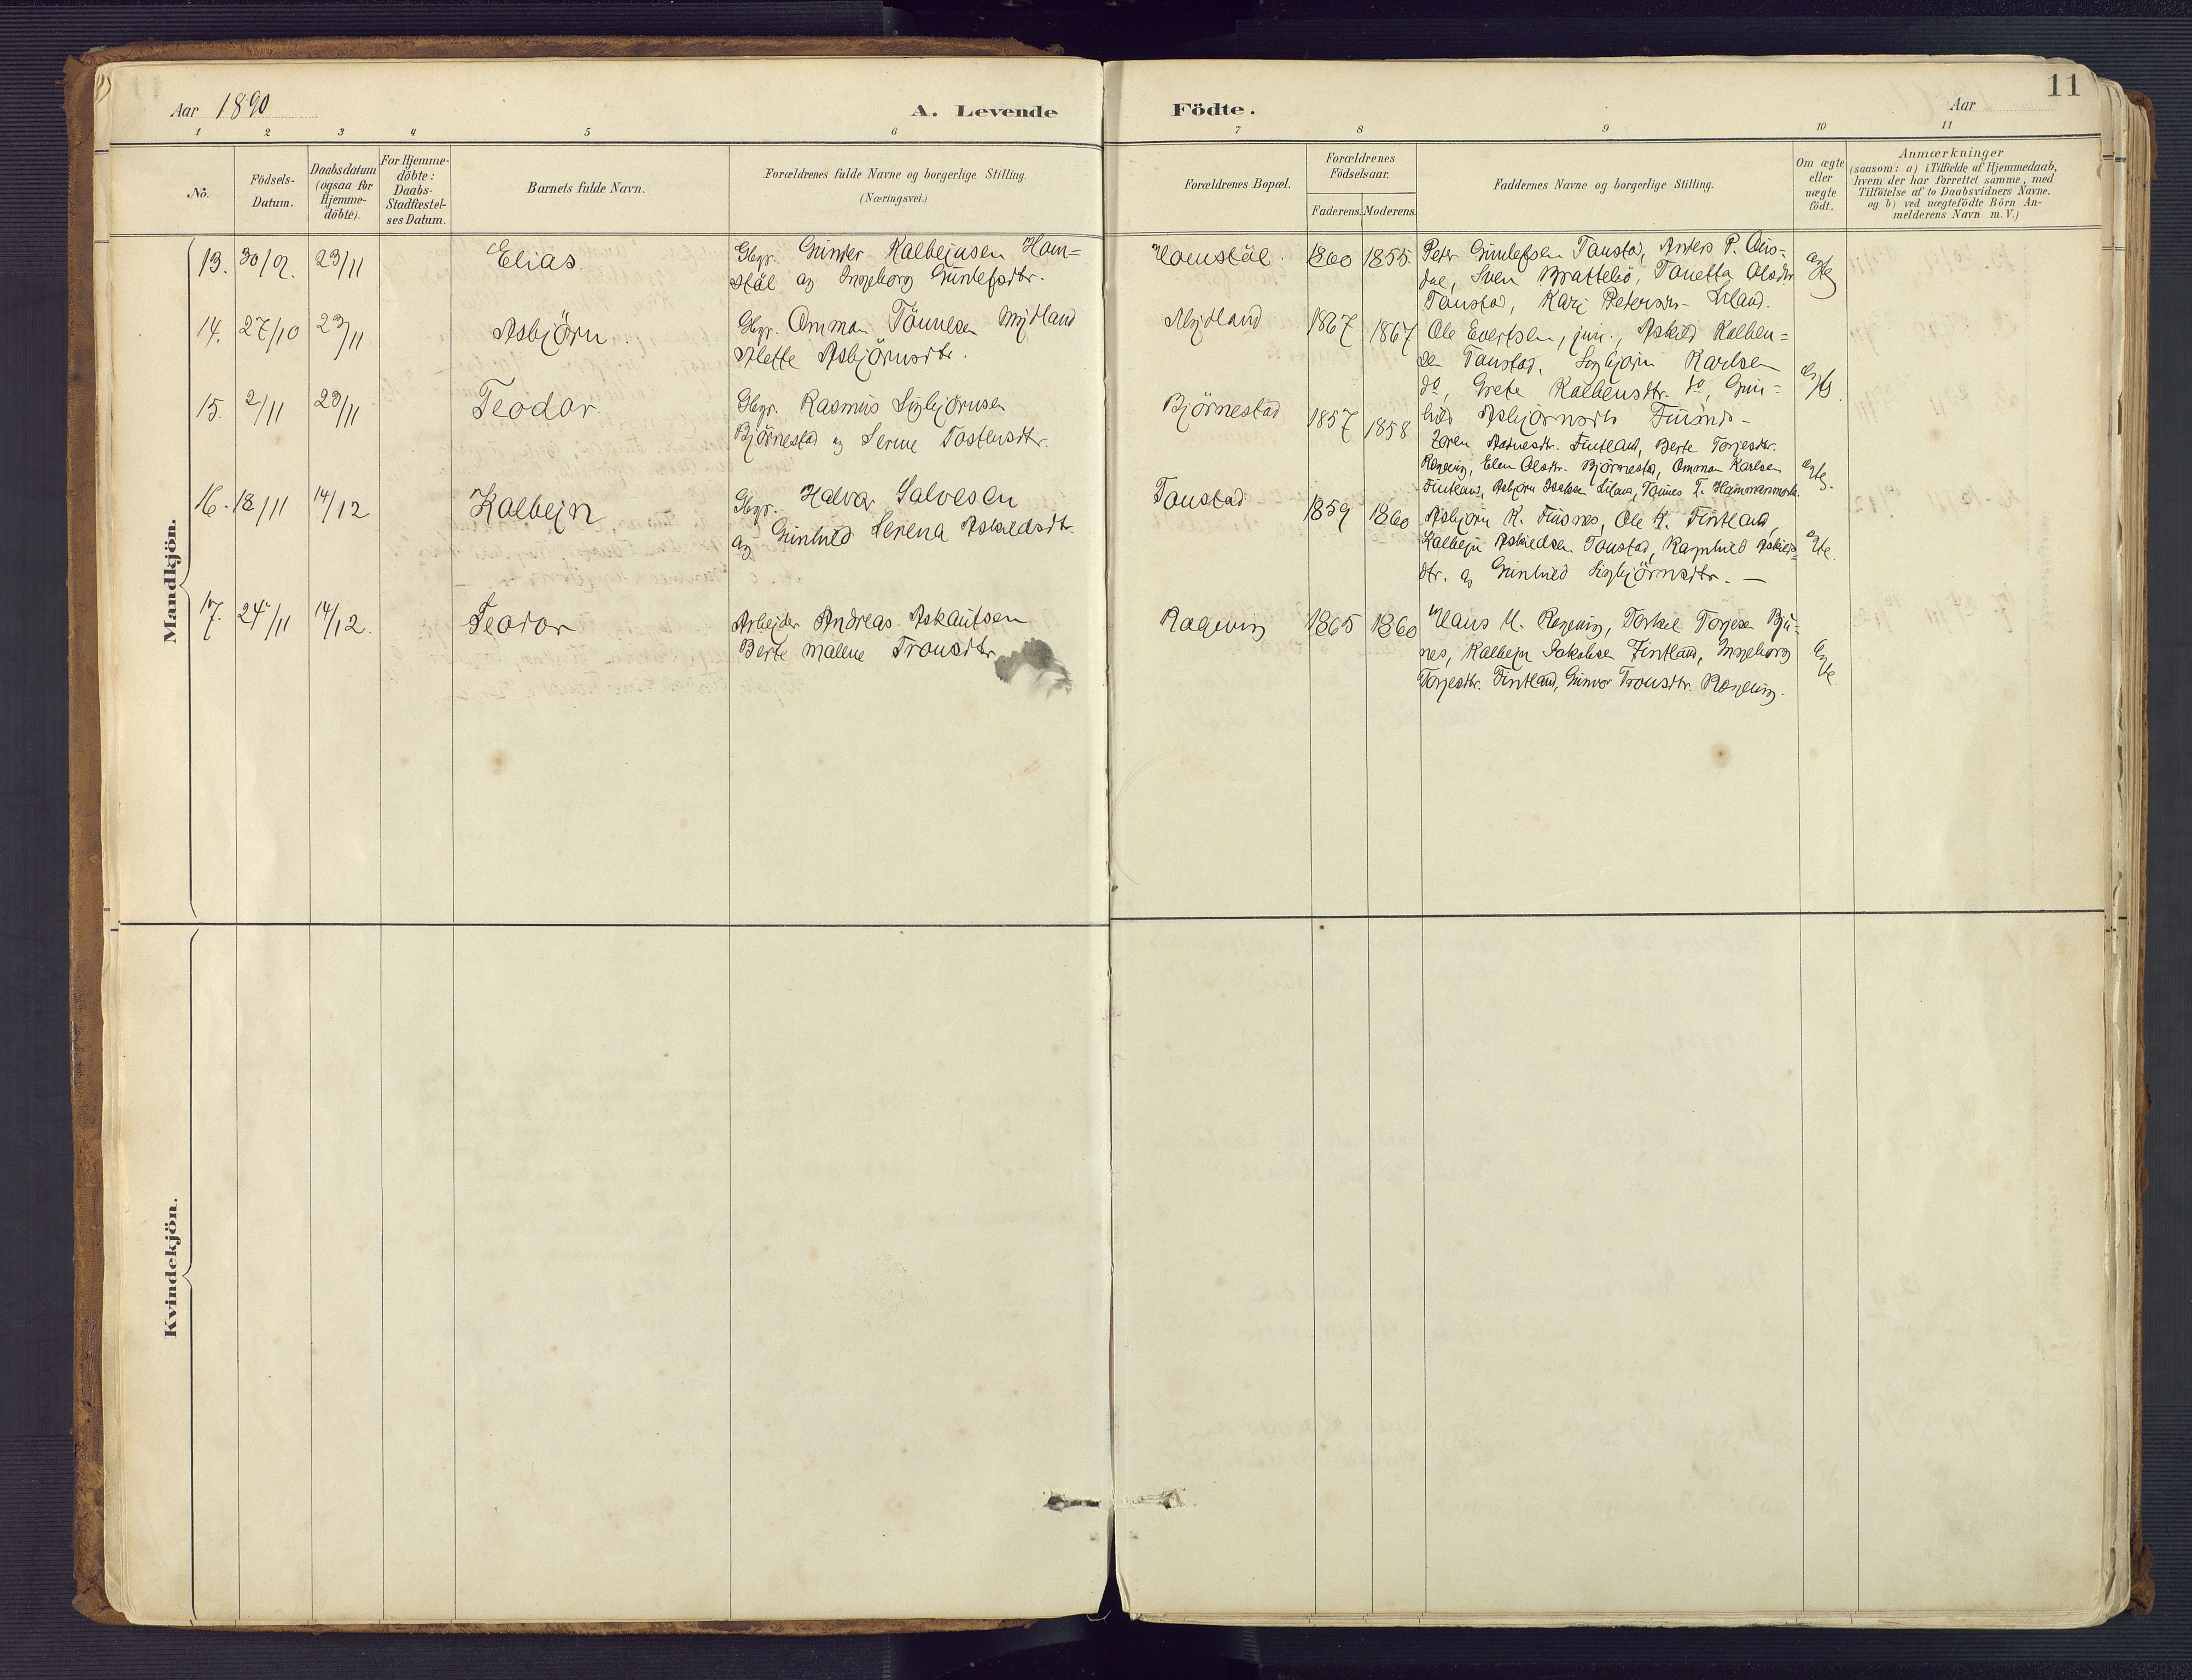 Aar 1890
A. Levende
Födte.
Aar
11
1 2 3 4 5 6 7 8 9 10 11
No.
Födsels-Datum.
Daabsdatum (ogsaa for Hjemme-döbte).
For Hjemme-döbte: Daabs-Stadfæstel-ses Datum.
Barnets fulde Navn.
Forældrenes fulde Navne og borgerlige Stilling.
(Næringsvei.)
Forældrenes Bopæl.
Forældrenes Födselsaar.
Faderens. Moderens.
Faddernes Navne og borgerlige Stilling.
Om ægte eller uægte födt.
Anmærkninger
(saasom: a) i Tilfælde af Hjemmedaab,
hvem der har forrettet samme, med
Tilföielse af to Daabsvidners Navne.
og b) ved uægtefödte Börn An-
melderens Navn m. V.)
Mandkjön.
13. 30/9. 23/11 Elias. Gbgr. Gunder Kalbejnsen Hom=
stöl og Ingeborg Gunlefsdtr.
Homstöl. 1860 1855.
Peter Gunlefsen Tonstad, Anders P. Ous-
dal, Sven Bratteliö, Tonetta Olsdtr
Tonstad, Kari Petersdtr. Liland.
ægte
14. 27/10 23/11 Asbjörn Gbgr. Omman Tönnesen Mydland
Alette Asbjörnsdtr.
Mydland 1867 1867
Ole Evertsen, jun., Askild Kalben=
sen Tonstad, Sigbjörn Karlsen
do, Grete Kalbensdtr. do, Gun=
hild Asbjörnsdtr
ægte.
15. 2/11 23/11 Teodor. Gbgr. Rasmus Sigbjörnsen
Björnestad og Serine Tostensdtr.
Björnestad 1857 1858
Fintland, Berte Torjesdtr.
Rogeving, Elen Olsdtr. Björnestad, Omman Karlsen
Fintland, Asbjörn Liland, Tönnes T. Hammersmark.
ægte.
16. 18/11 14/12 Kalbejn Gbgr. Halvor Salvesen
og Gunhild Serena Askildsdtr.
Tonstad 1859 1860
Asbjörn K. Fusnes, Ole K. Fintland,
Kalbejn Askildsen Tonstad, Ragnhild Askilds=
dtr. og Gunhild Sigbjörnsdtr. —
ægte.
17. 24/11 14/12. Teodor Arbejder Andreas Askautsen
Berte Malene Tronsdtr.
Rogeving 1865 1860
Klaus M. Rogeving, Torkel Torjesen Bju-
nes, Kalbejn Jakobsen Fintland, Ingeborg
Torjesdtr. Fintland, Gunvor Tronsdtr. Rogeving.
ægte
Kvindekjön.